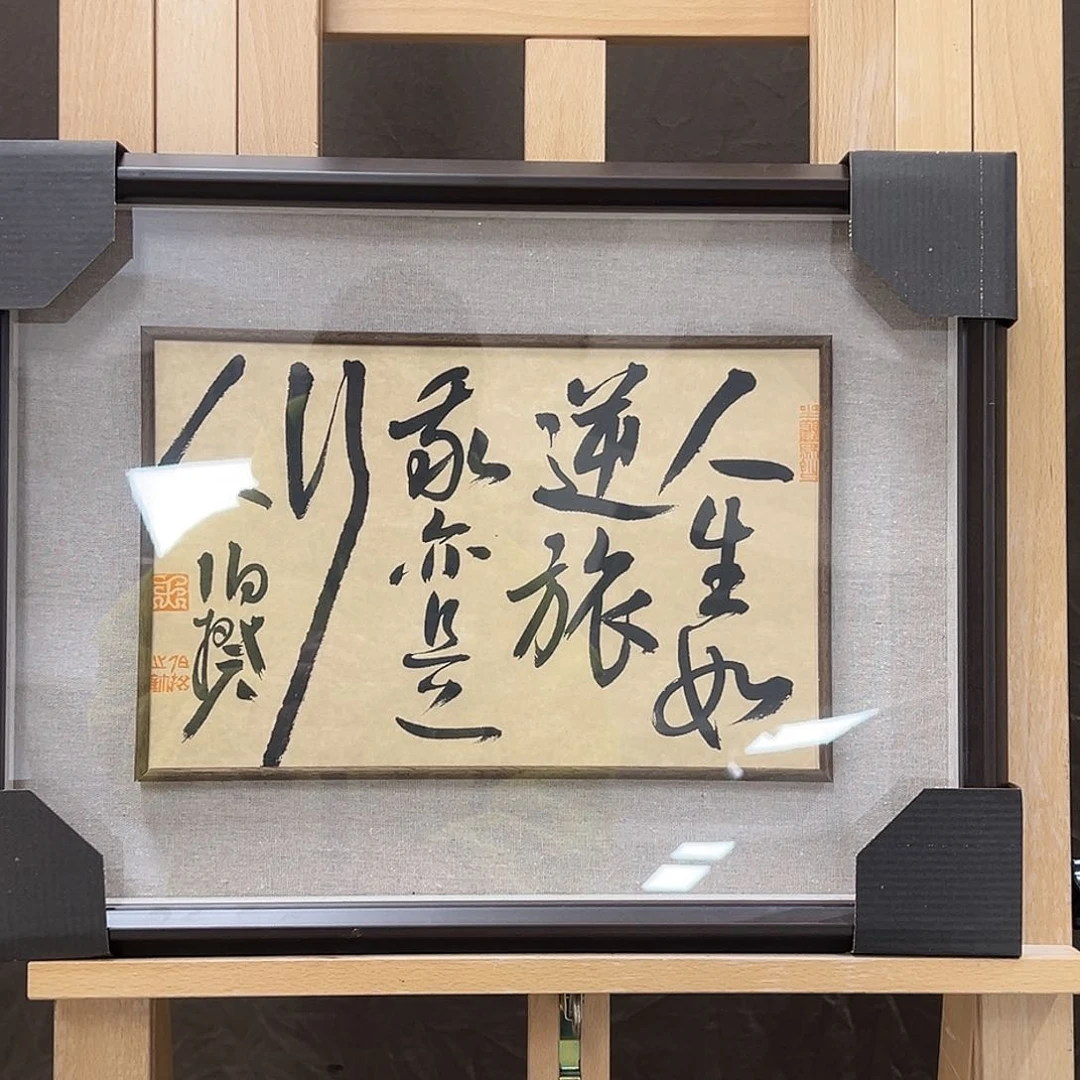 人生如
逆旅
我亦是
行
人
伯